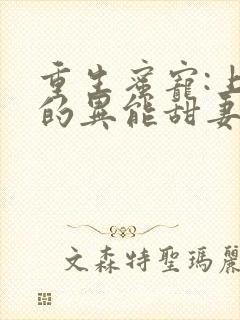 重生蜜寵:上
的異能甜妻
文森特聖瑪麗